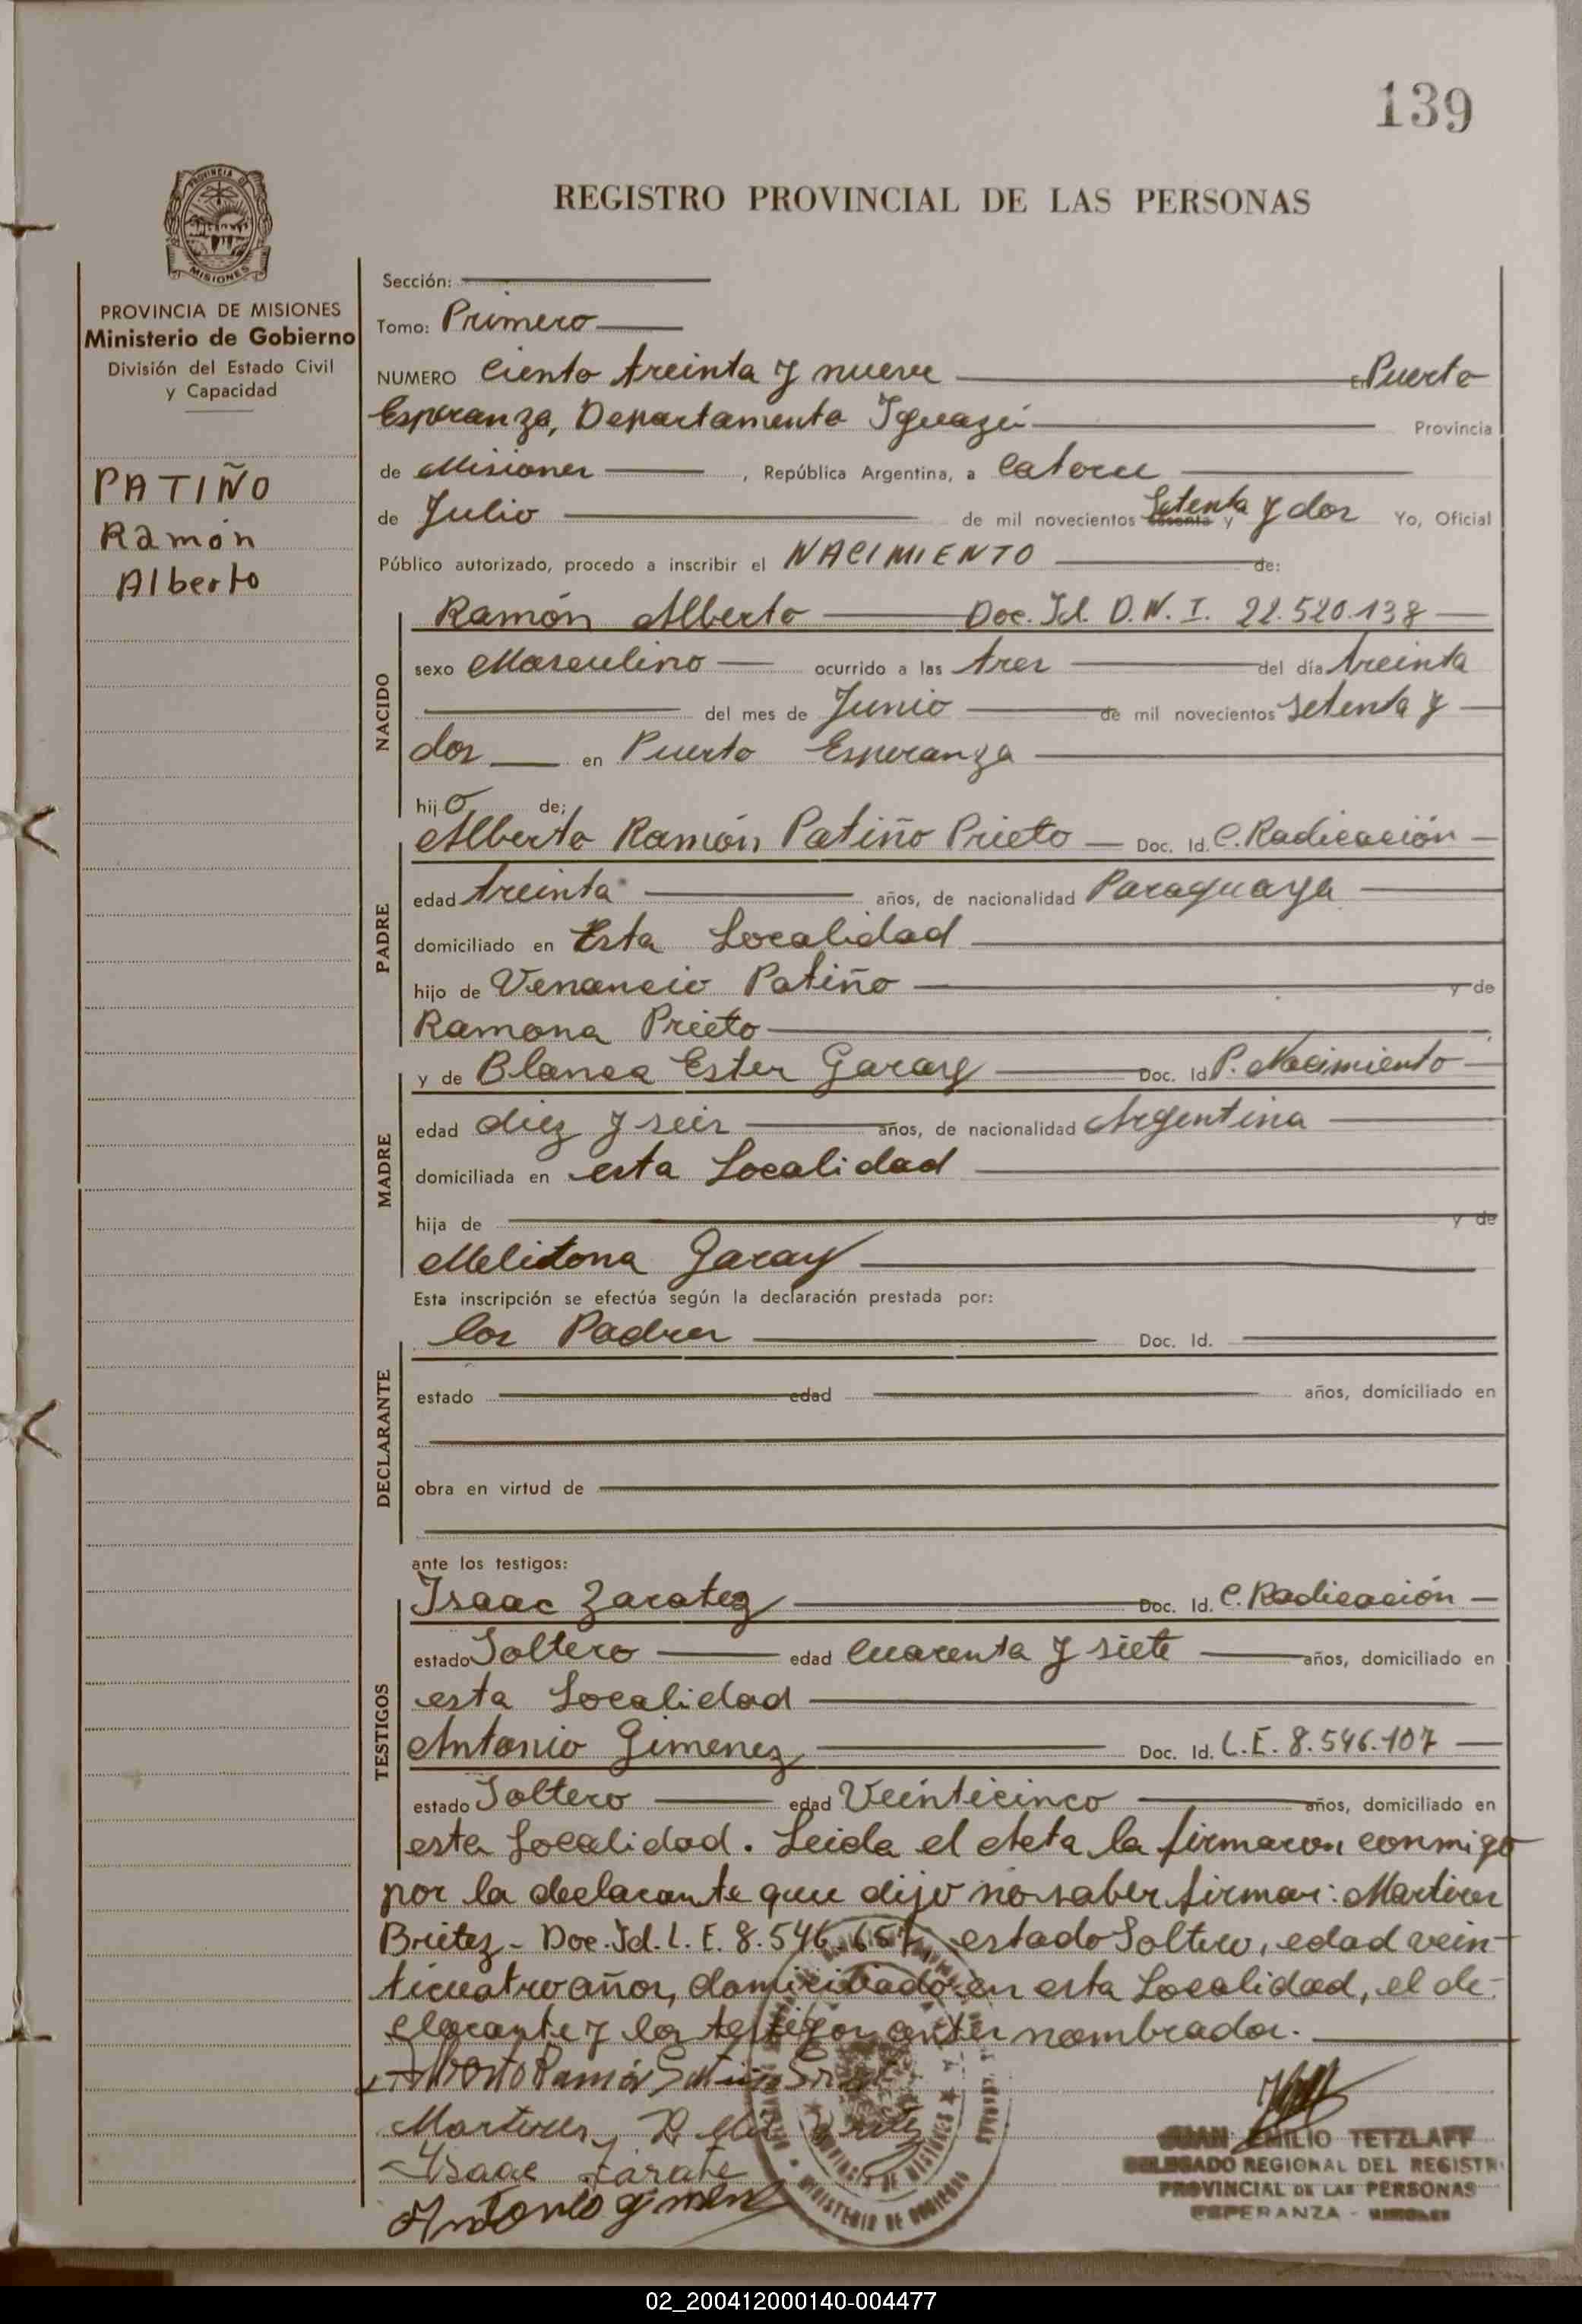 139
REGISTRO PROVINCIAL DE LAS PERSONAS
PROVINCIA DE
MISIONES
PROVINCIA DE MISIONES
Ministerio de Gobierno
División del Estado Civil
y Capacidad
PATIÑO
Ramón
Alberto
Sección:
Tomo: Primero
NUMERO Ciento treinta y nueve En Puerto
Esperanza, Departamento Iguazú Provincia
de Misiones , República Argentina, a Catorce
de Julio de mil novecientos sesenta y Setenta y dos Yo, Oficial
Público autorizado, procedo a inscribir el NACIMIENTO de:
NACIDO
Ramón Alberto Doc. Id. D.N.I. 22.520.138
sexo Masculino ocurrido a las tres del día treinta
del mes de Junio de mil novecientos setenta y
dos en Puerto Esperanza
hijo de;
PADRE
Alberto Ramón Patiño Prieto Doc. Id. C. Radicación
edad treinta años, de nacionalidad Paraguaya
domiciliado en Esta Localidad
hijo de Venancio Patiño y de
Ramona Prieto
MADRE
y de Blanca Ester Garay Doc. Id. P. Nacimiento
edad diez y seis años, de nacionalidad Argentina
domiciliada en esta Localidad
hija de y de
Melitona Garay
Esta inscripción se efectúa según la declaración prestada por:
DECLARANTE
los Padres Doc. Id.
estado edad años, domiciliado en
obra en virtud de
ante los testigos:
TESTIGOS
Isaac Zaratez Doc. Id. C. Radicación
estado Soltero edad Cuarenta y siete años, domiciliado en
esta Localidad
Antonio Gimenez Doc. Id. L.E. 8.546.107
estado Soltero edad Veinticinco años, domiciliado en
esta Localidad. Leida el Acta la firmaron conmigo
por la declarante que dijo no saber firmar: Martires
Britez - Doc. Id. L.E. 8.546.657, estado Soltero, edad vein-
ticuatro años, domiciliado en esta Localidad, el de-
clarante y los testigos antes nombrados.
Alberto Ramón Patiño
Martires
Isaac Zarate
Antonio Gimenez
MINISTERIO DE GOBIERNO
PROVINCIA DE MISIONES
JUAN EMILIO TETZLAFF
DELEGADO REGIONAL DEL REGISTRO
PROVINCIAL DE LAS PERSONAS
ESPERANZA - MISIONES
02_200412000140-004477